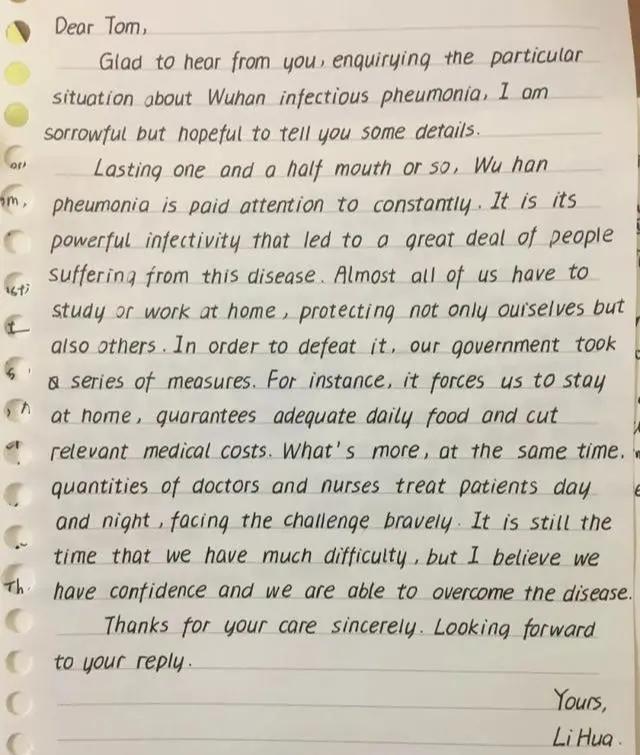 Dear Tom,
Glad to hear from you, enquirying the particular
situation about Wuhan infectious pheumonia, I am
sorrowful but hopeful to tell you some details.
Lasting one and a half mouth or so, Wu han
pheumonia is paid attention to constantly. It is its
powerful infectivity that led to a great deal of people
suffering from this disease. Almost all of us have to
study or work at home, protecting not only ourselves but
also others. In order to defeat it, our government took
a series of measures. For instance, it forces us to stay
at home, guarantees adequate daily food and cut
relevant medical costs. What's more, at the same time,
quantities of doctors and nurses treat patients day
and night, facing the challenge bravely. It is still the
time that we have much difficulty, but I believe we
have confidence and we are able to overcome the disease.
Thanks for your care sincerely. Looking forward
to your reply.
Yours,
Li Hua.